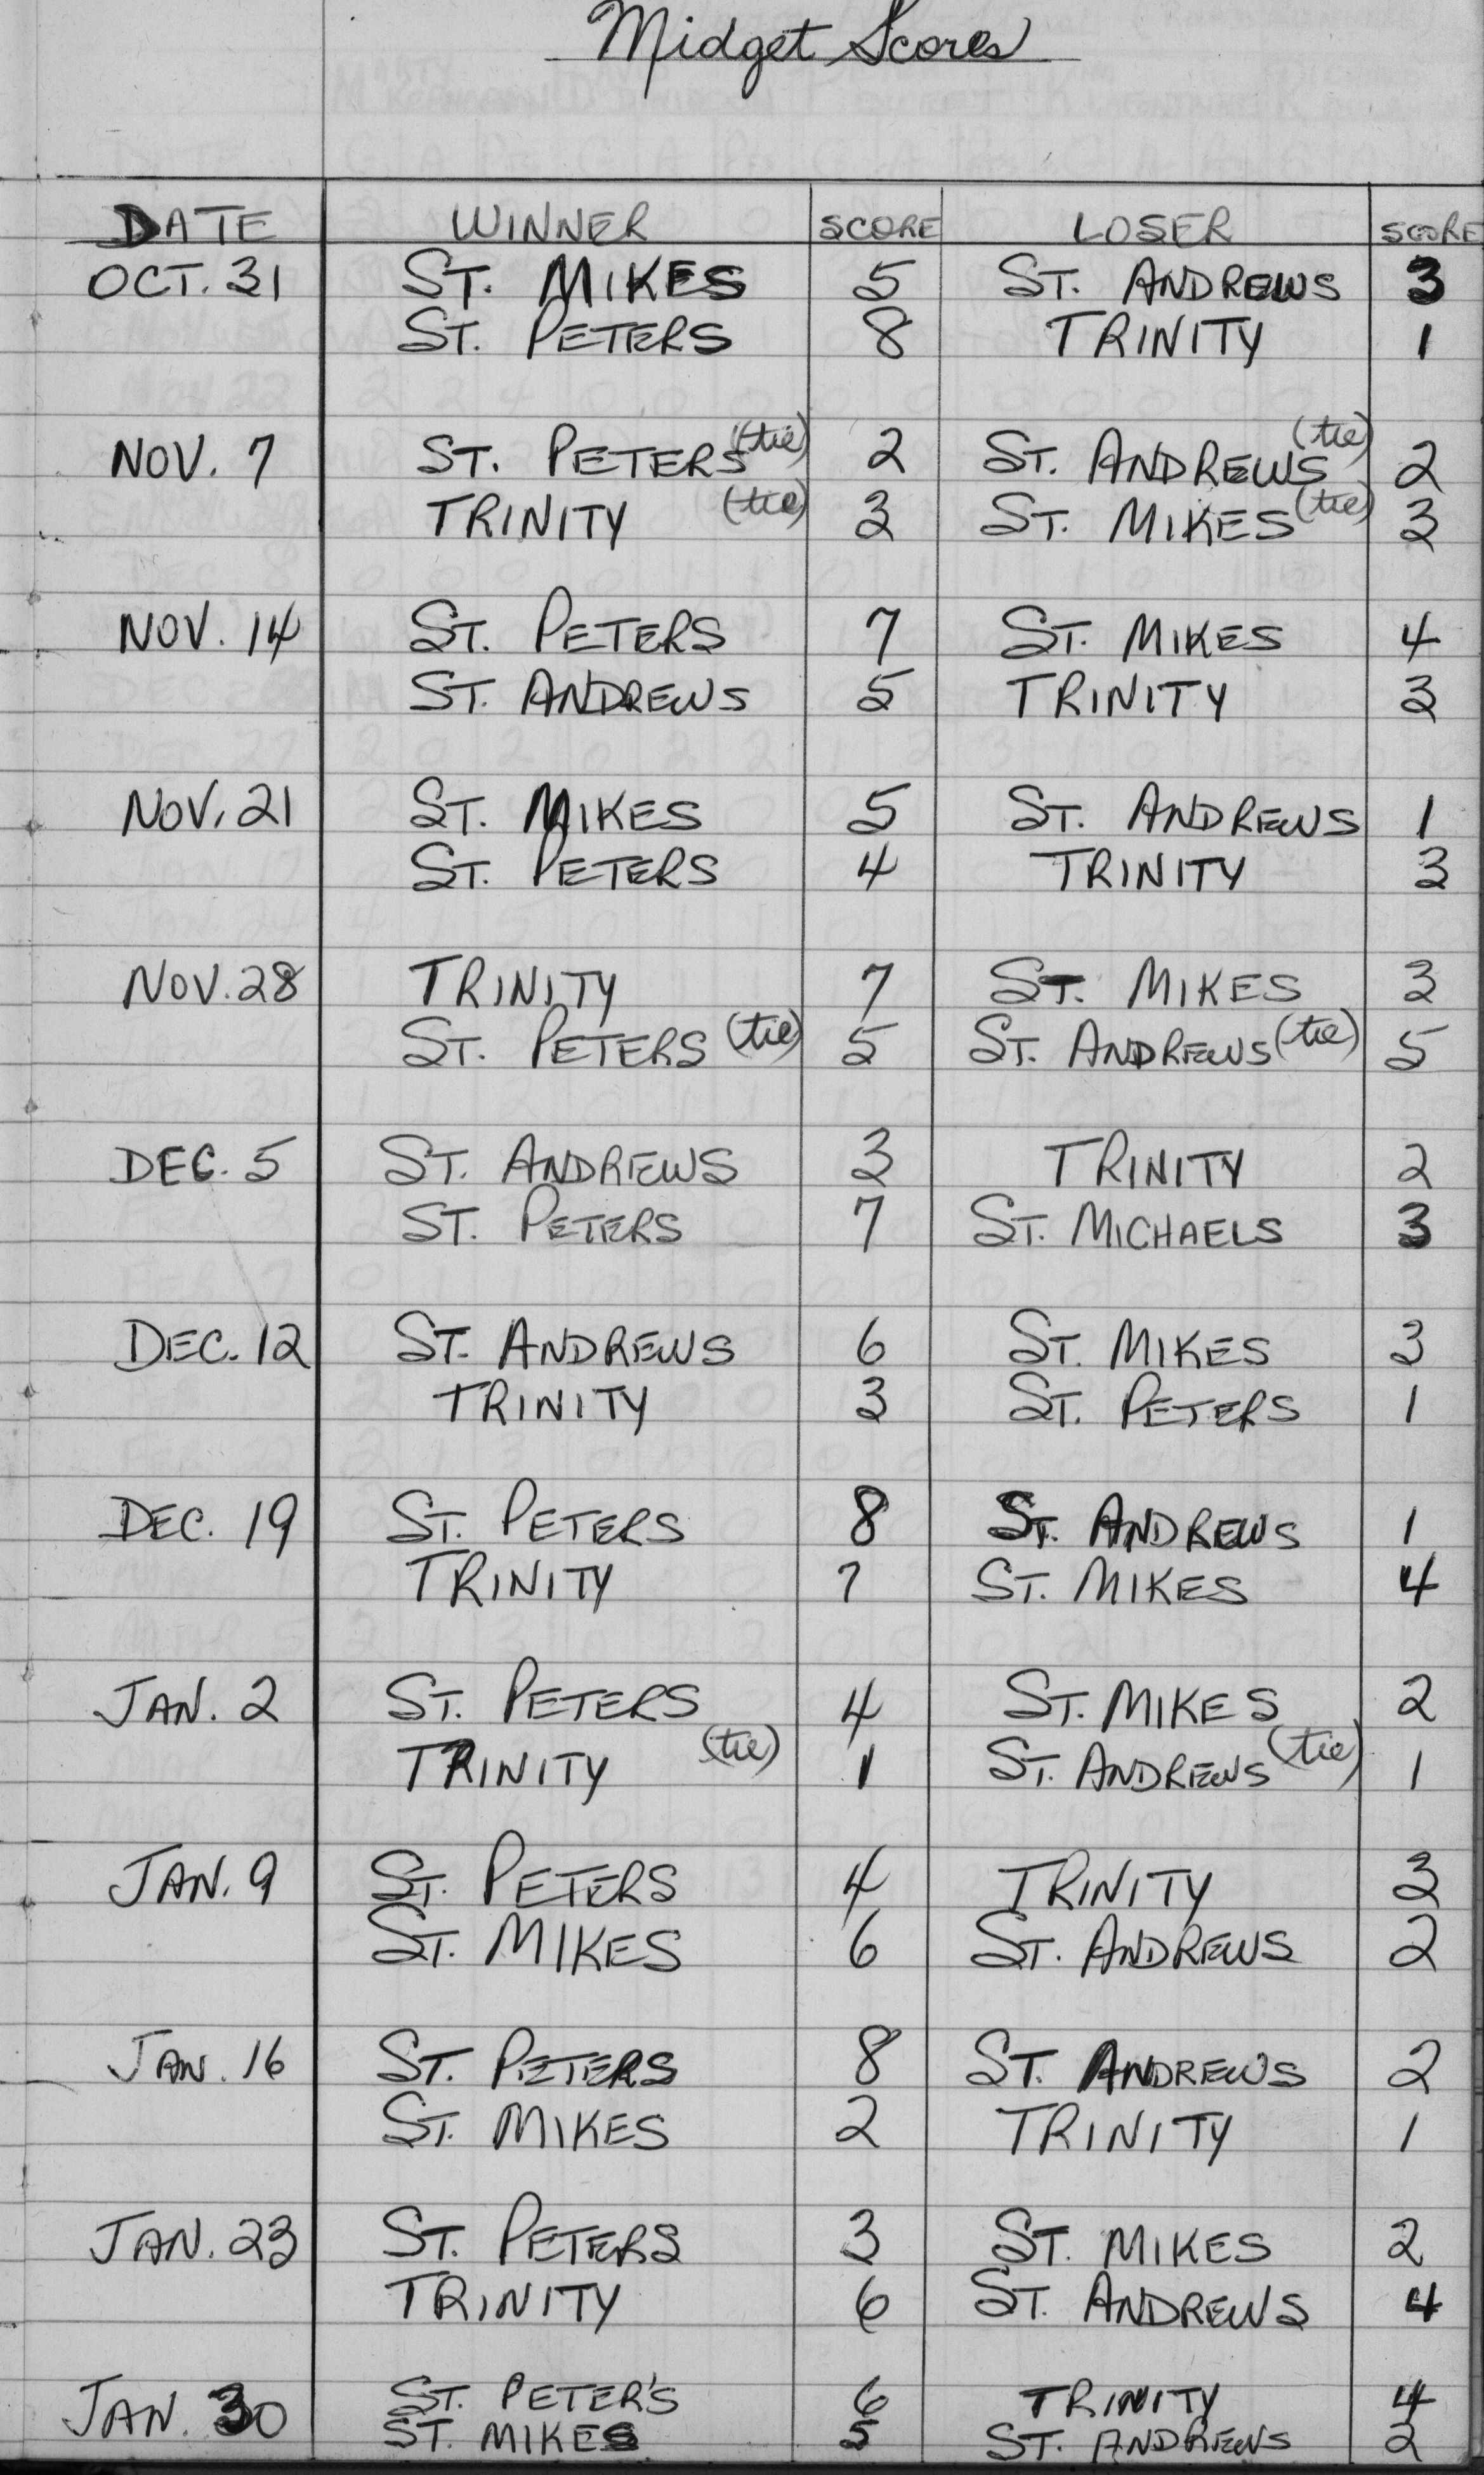 Midget Scores
DATE WINNER SCORE LOSER SCORE
OCT. 31 ST. MIKES 5 ST. ANDREWS 3
ST. PETERS 8 TRINITY 1
NOV. 7 ST. PETERS (tie) 2 ST. ANDREWS (tie) 2
TRINITY (tie) 3 ST. MIKES (tie) 3
NOV. 14 ST. PETERS 7 ST. MIKES 4
ST. ANDREWS 5 TRINITY 3
NOV. 21 ST. MIKES 5 ST. ANDREWS 1
ST. PETERS 4 TRINITY 3
NOV. 28 TRINITY 7 ST. MIKES 3
ST. PETERS (tie) 5 ST. ANDREWS (tie) 5
DEC. 5 ST. ANDREWS 3 TRINITY 2
ST. PETERS 7 ST. MICHAELS 3
DEC. 12 ST. ANDREWS 6 ST. MIKES 3
TRINITY 3 ST. PETERS 1
DEC. 19 ST. PETERS 8 ST. ANDREWS 1
TRINITY 7 ST. MIKES 4
JAN. 2 ST. PETERS 4 ST. MIKES 2
TRINITY (tie) 1 ST. ANDREWS (tie) 1
JAN. 9 ST. PETERS 4 TRINITY 3
ST. MIKES 6 ST. ANDREWS 2
JAN. 16 ST. PETERS 8 ST. ANDREWS 2
ST. MIKES 2 TRINITY 1
JAN. 23 ST. PETERS 3 ST. MIKES 2
TRINITY 6 ST. ANDREWS 4
JAN. 30 ST. PETER'S 6 TRINITY 4
ST. MIKES 5 ST. ANDREWS 2